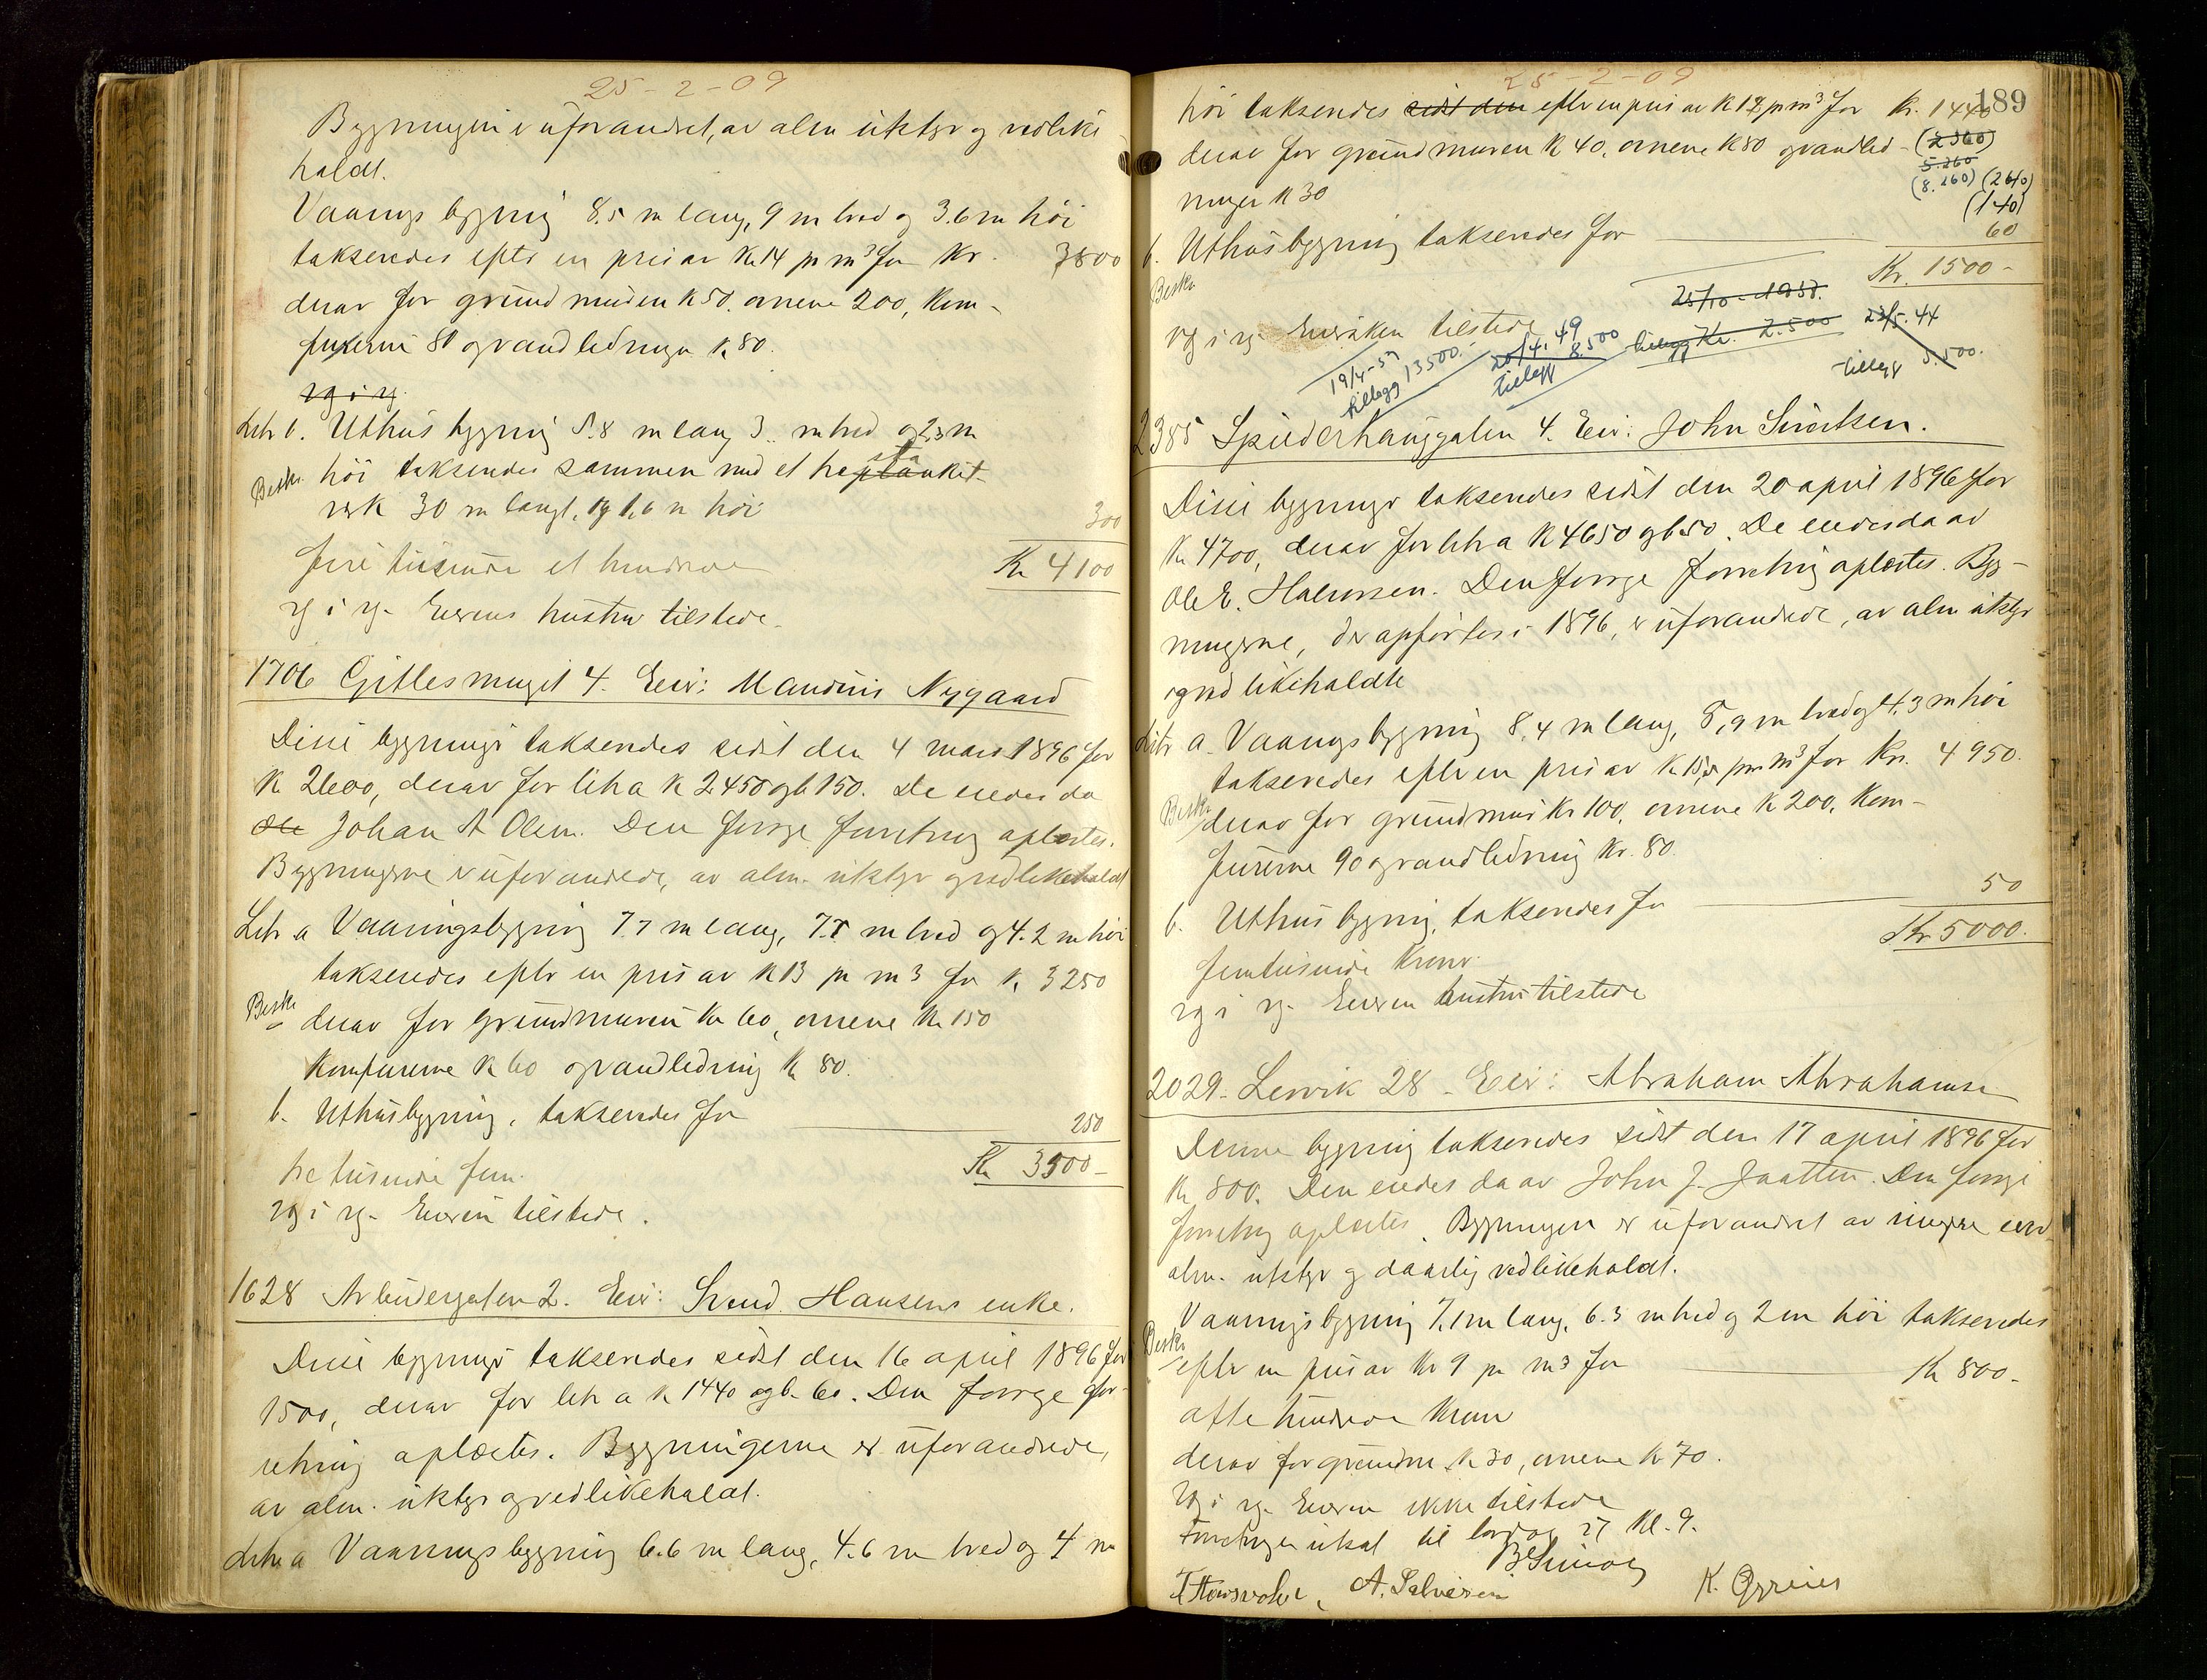 25-2-09
Bygningen er uforandret, av alm utstyr og vedlike-
holdt.
Vaanings bygning 8.5 m lang, 9 m bred og 3.6 m høi
takseredes efter en pris av Kr 14 pr m³ for Kr. 3800
derav for grundmuren K 50. ovnene 200, Kom-
furerne 80 og vandledningen K 80.
rg i rg.
Litr b. Uthus bygning 5.8 m lang 3 m bred og 2.3 m
Beskr. høi takseredes sammen med et
verk 30 m langt, og 1,6 m høi 300
fire tusinde et hundrede Kr 4100
rg i rg. Eierens hustru tilstede.
1706 Gitlesmuget 4. Eier: Maurinus Nygaard
Disse bygninger takseredes sidst den 4 mars 1896 for
K 2600, derav for litr a K 2450 og b 150. De eiedes da
Johan A Olsen. Den forrige forretning oplæstes.
Bygningerne er uforandrede, av alm. utstyr og vedlikeholdt
Litr a Vaaningsbygning 7.7 m lang, 7.7 m bred og 4.2 m høi
takseredes efter en pris av K 13 pr m3 for K. 3250
Beskr derav for grundmuren Kr 60, ovnene Kr 150
Komfurerne K 60 og vandledning K 80.
b. Uthusbygning, takseredes for 250
tre tusinde fem. Kr 3500-
rg i rg. Eieren tilstede.
1628 Arbeidergaten 2. Eier: Svend Hansens enke.
Disse bygninger takseredes sidst den 16 april 1896 for
1500, derav for litr a K 1440 og b 60. Den forrige for-
retning oplæstes. Bygningerne er uforandrede,
av alm. utstyr og vedlikeholdt.
Litr a Vaanings bygning 6.6 m lang, 4.6 m bred og 4 m
25-2-09
189
høi takseredes sidst den efter en pris av K 12 pr m³ for Kr. 1440
derav for grundmuren K 40, ovnene K 80 og vandled- (2360)
5.260
ninger K 30 (8.260) (2640)
(140)
b. Uthusbygning takseredes for 60
Beskr Kr. 1500-
rg i rg. Eier ikke tilstede
25/10-1938.
tillegg Kr. 2.500
23/5.44
tillegg 5.500.
20/4.49
tillegg 8.500
19/4-57
tillegg 13500.
2385 Spilderhauggaten 4. Eier: John Sivertsen.
Disse bygninger takseredes sidst den 20 april 1896 for
Kr 4700, derav for litr a K 4650 og b 50. De eiedes da av
Ole E. Halvorsen. Den forrige forretning oplæstes. Byg-
ningerne, der opførtes i 1896, er uforandrede, av alm utstyr
og vedlikeholdte
Litr a. Vaanings bygning 8,4 m lang, 8,9 m bred og 4.3 m høi
takseredes efter en pris av K 15,5 pr m³ for Kr. 4950.
Beskr derav for grundmur Kr 100, ovnene K 200, Kom-
furerne 90 og vandledning Kr. 80.
b. Uthus bygning, takseredes for 50
Kr 5000.
femtusinde Kroner.
rg i rg. Eieren hustru tilstede
2029. Lervik 28. Eier: Abraham Abrahamsen
Denne bygning takseredes sidst den 17 april 1896 for
Kr 800. Den eiedes da av John J. Jaatten. Den forrige
forretning oplæstes. Bygningen er uforandret av
alm. utstyr og daarlig vedlikeholdt.
Vaanings bygning 7.1 m lang, 6.3 m bred og 2 m høi takseredes
Beskr efter en pris av Kr 9 pr m3 for Kr 800.
otte hundrede Kroner
derav for grundm. K 30, ovnene Kr 70.
rg i rg. Eieren ikke tilstede
Forretningen utsat til lørdag 27 Kl. 9.
A. Salvesen